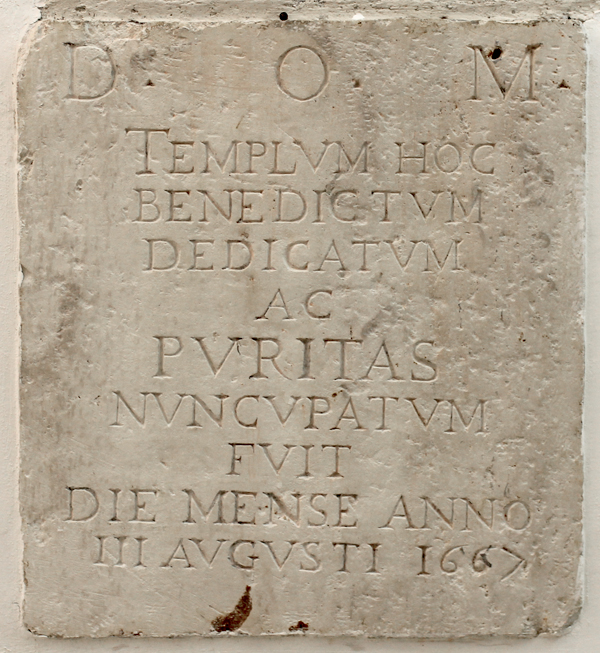 D · O · M ·
TEMPLVM HOC
BENEDICTVM
DEDICATVM
AC
PVRITAS
NVNCVPATVM
FVIT
DIE MENSE ANNO
III AVGVSTI 1667